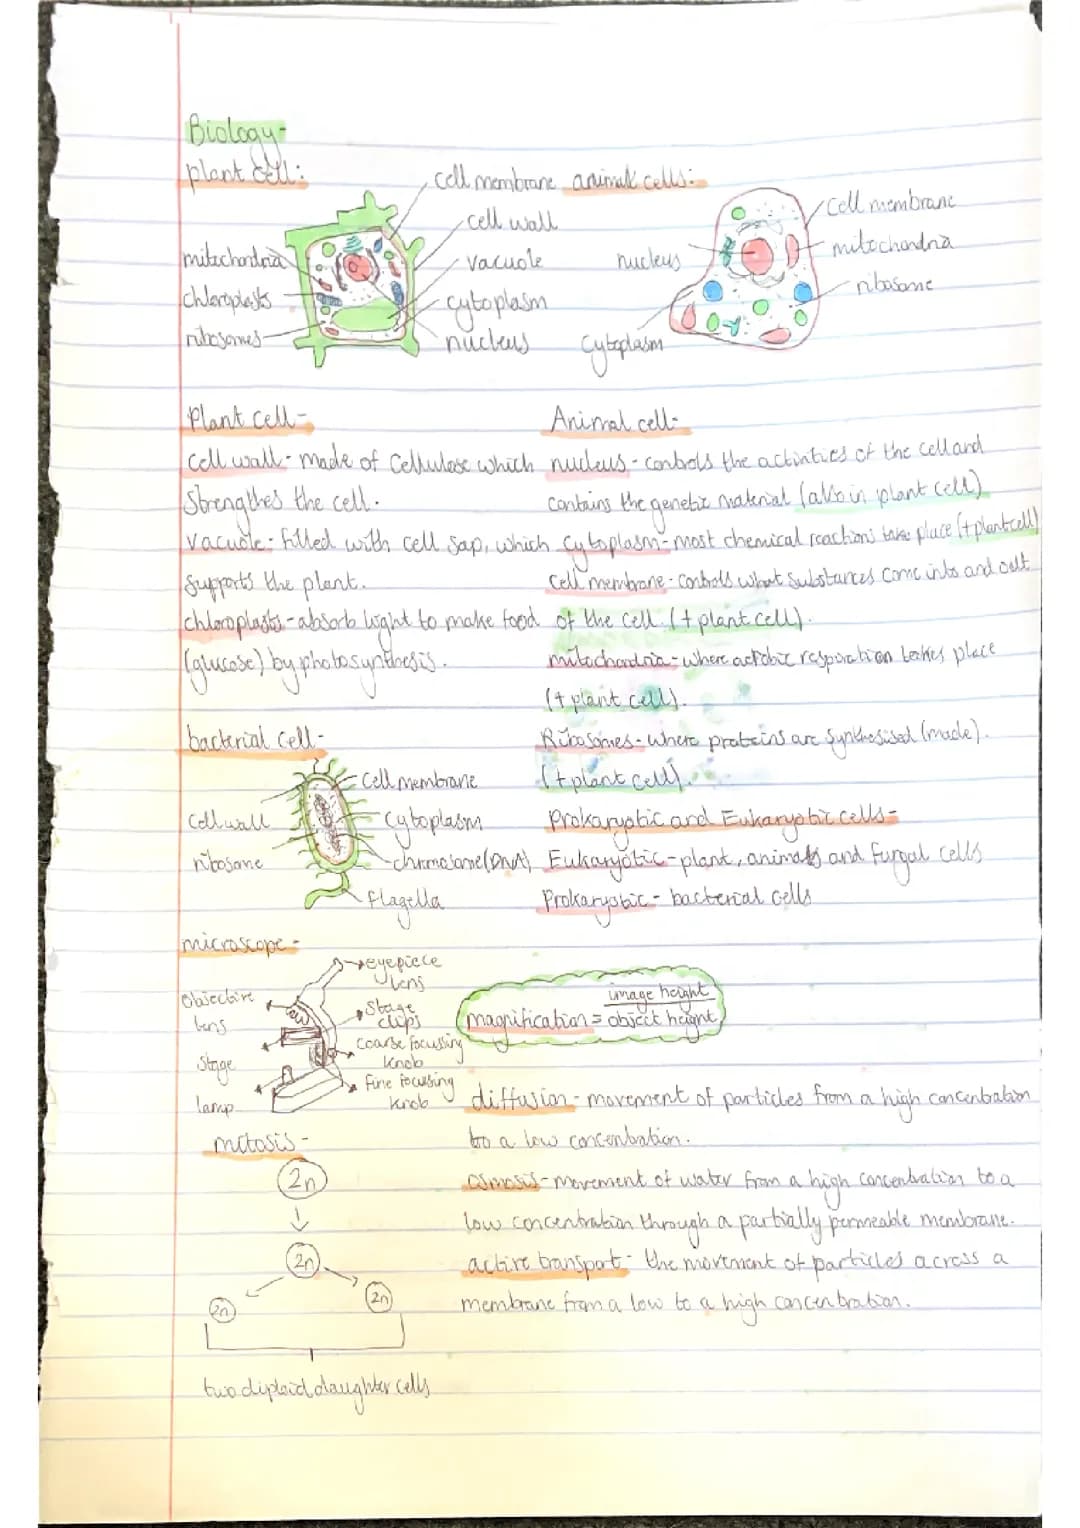 Biology-
plant cell:
cell membrane
cell wall
vacuole
cytoplasm
nucleus
mitochondria
chloroplasts
ribosomes
animal cells:
cell membrane
mitochondria
ribosome
nucleus
cytoplasm
Plant cell-
cell wall- made of cellulose which
Strengthes the cell.
vacuole- filled with cell sap, which
supports the plant.
chloroplasts-absorb light to make food
(glucose) by photosynthesis.
Animal cell-
nucleus- controls the activities of the cell and
contains the genetic material (also in plant cell)
cytoplasm-most chemical reactions take place (+plant cell)
cell membrane- controls what substances come into and out
of the cell. (+ plant cell).
mitochondria-where aerobic respiration takes place
(+ plant cell).
Ribosomes- where proteins are synthesised (made).
(+ plant cell).
bacterial cell-
cell membrane
cytoplasm
chromosome (DNA)
flagella
cell wall
ribosome
Prokaryotic and Eukaryotic cells-
Eukaryotic-plant, animals and fungal cells
Prokaryotic- bacterial cells
microscope-
eyepiece
lens
stage
clips
coarse focussing
knob
Fine focussing
knob
objective
lens
stage
lamp
magnification = image height
object height
mitosis-
2n
2n
2n
2n
two diploid daughter cells
diffusion- movement of particles from a high concentration
to a low concentration.
osmosis-movement of water from a high concentration to a
low concentration through a partially permeable membrane.
active transport- the movement of particles across a
membrane from a low to a high concentration.